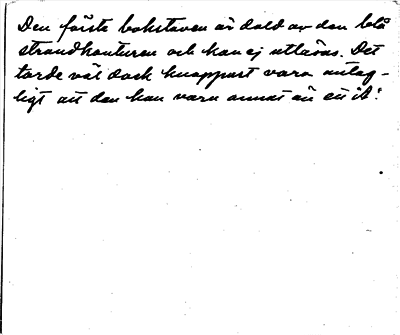 Den förste bokstaven är dold av den blå
strandkonturen och kan ej utläsas. Det
torde väl dock knappast vara antag-
ligt att den kan vara annat än ett A?